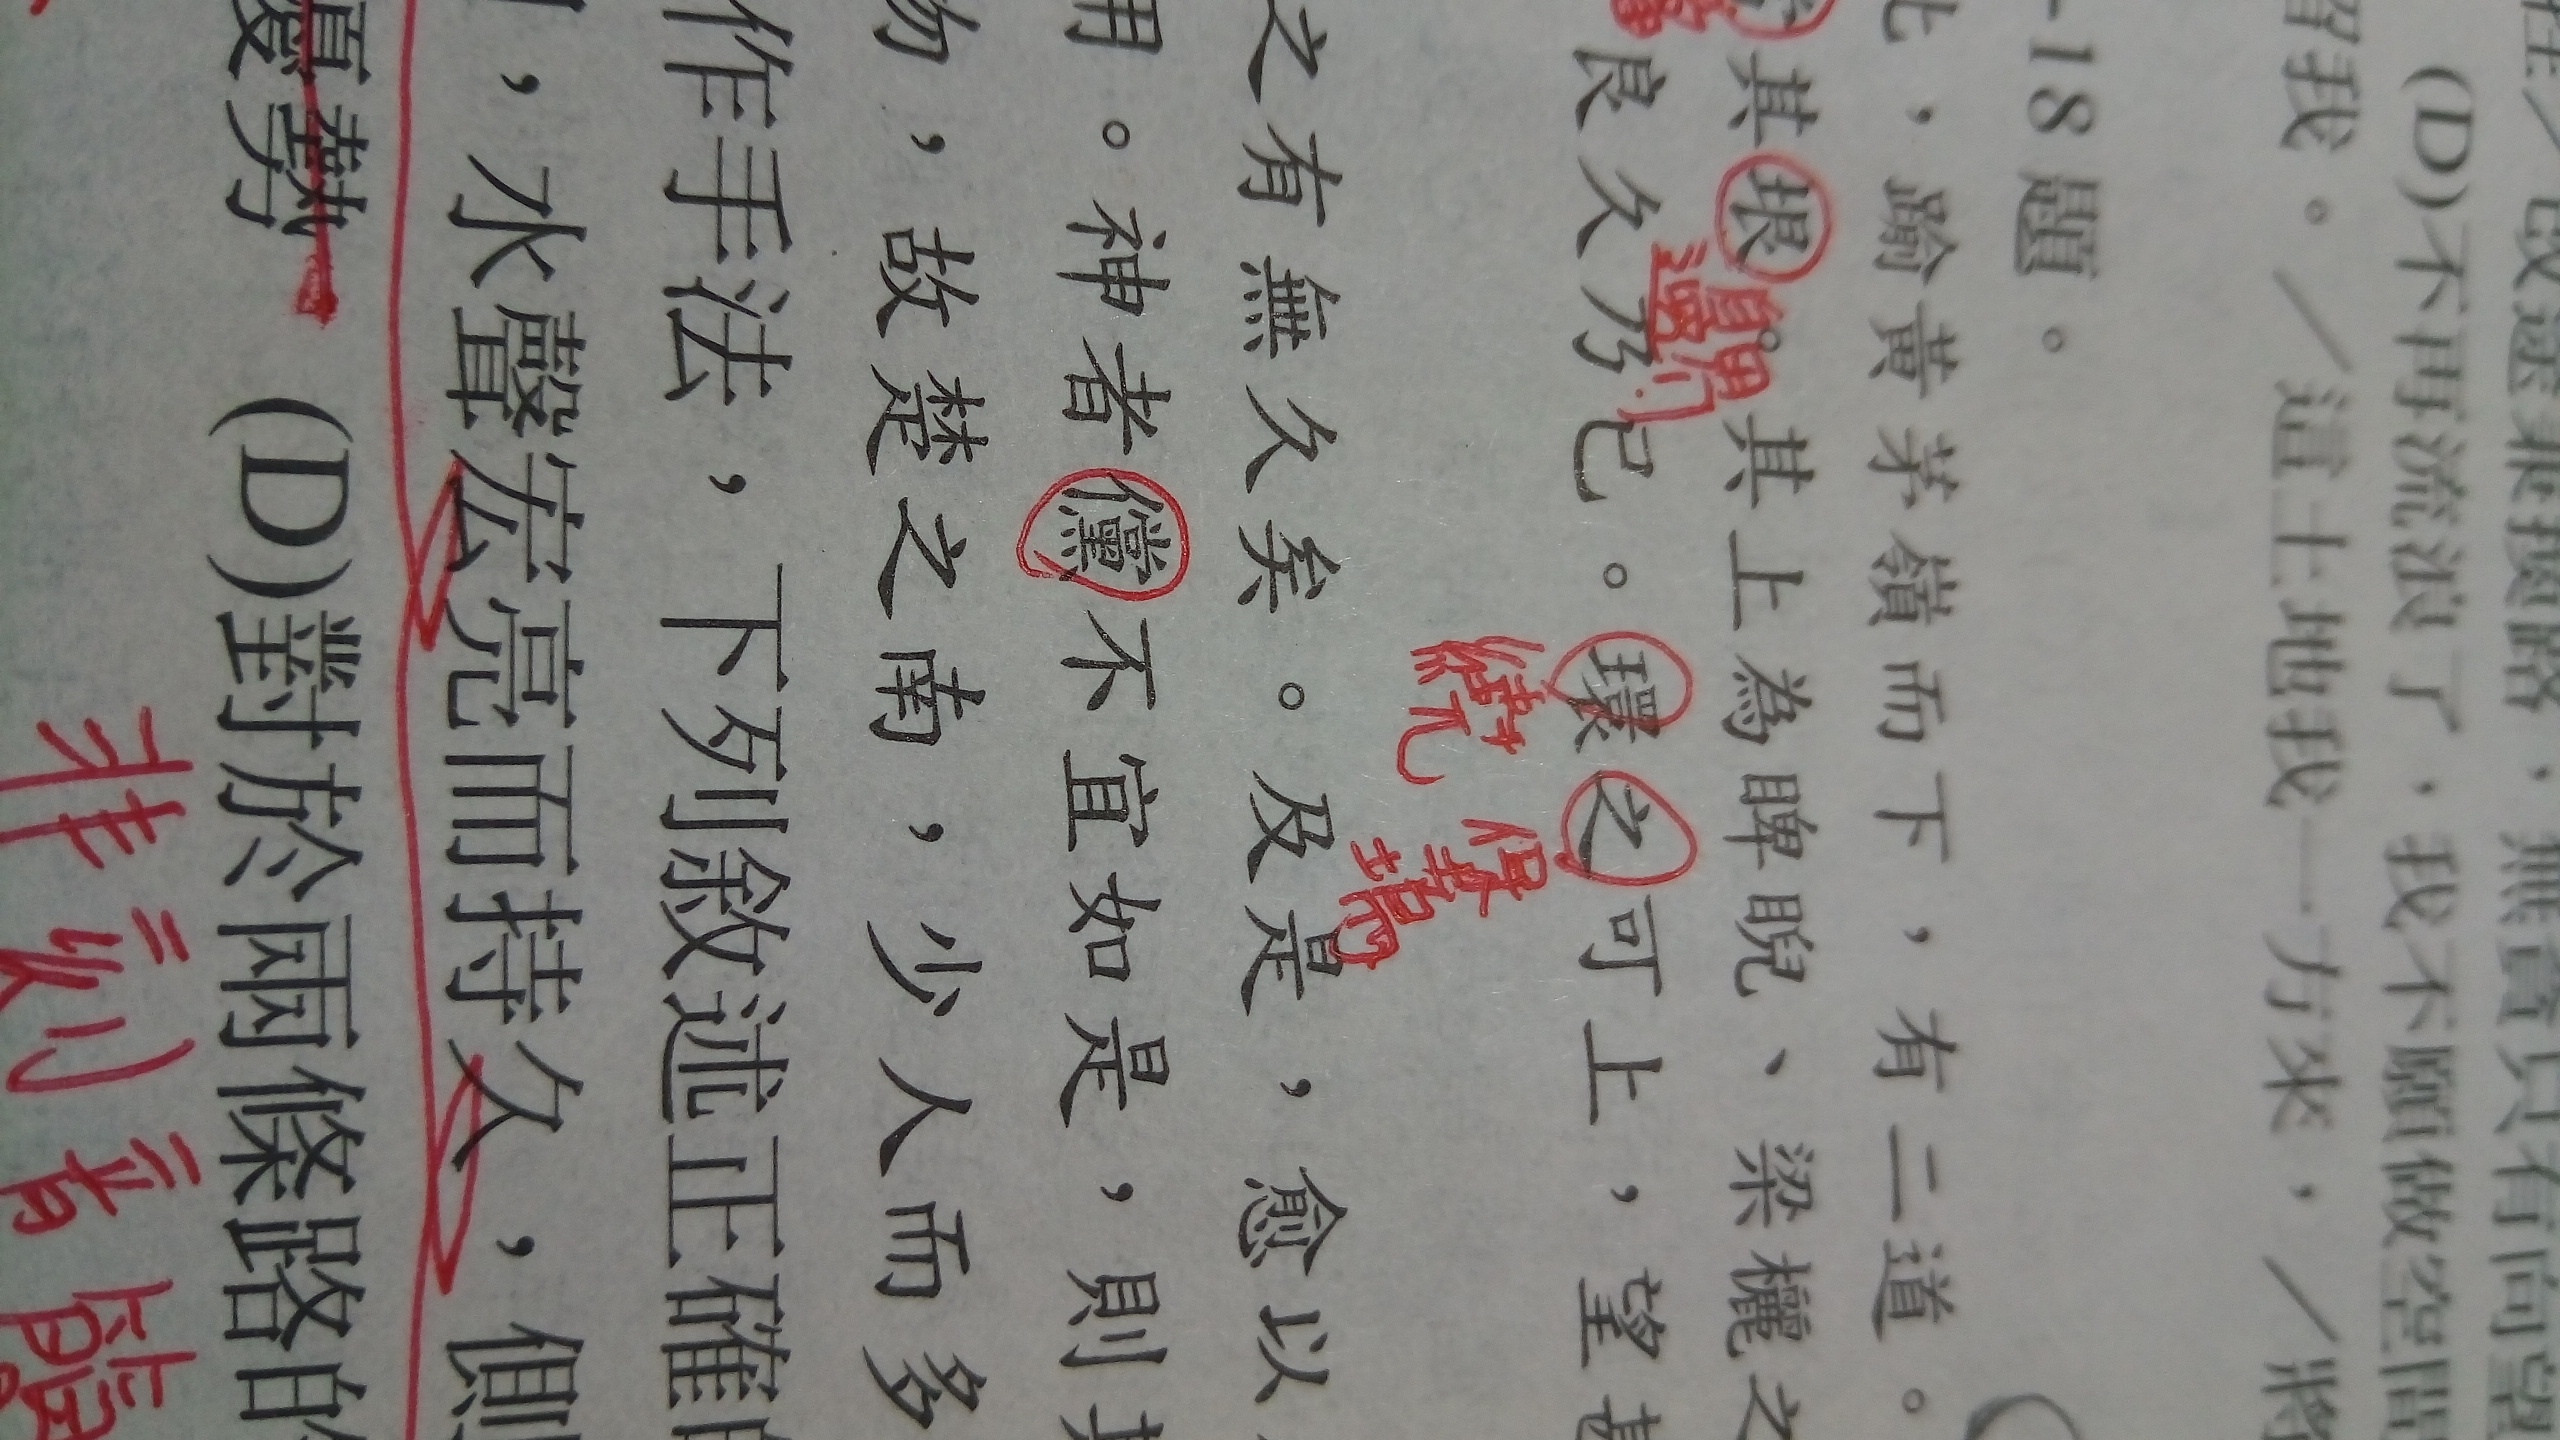 (D)不再流浪了，我不願做空間
留我。／這土地我一方來，／將
-18題。
北，踰黃茅嶺而下，有二道。
其垠。其上為睥睨、梁欐之
良久乃已。環之可上，望甚
繞
堡塢
之有無久矣。及是，愈以
用。神者儻不宜如是，則其
物，故楚之南，少人而多
作手法，下列敘述正確的
，水聲宏亮而持久，側
優勢 (D)對於兩條路的